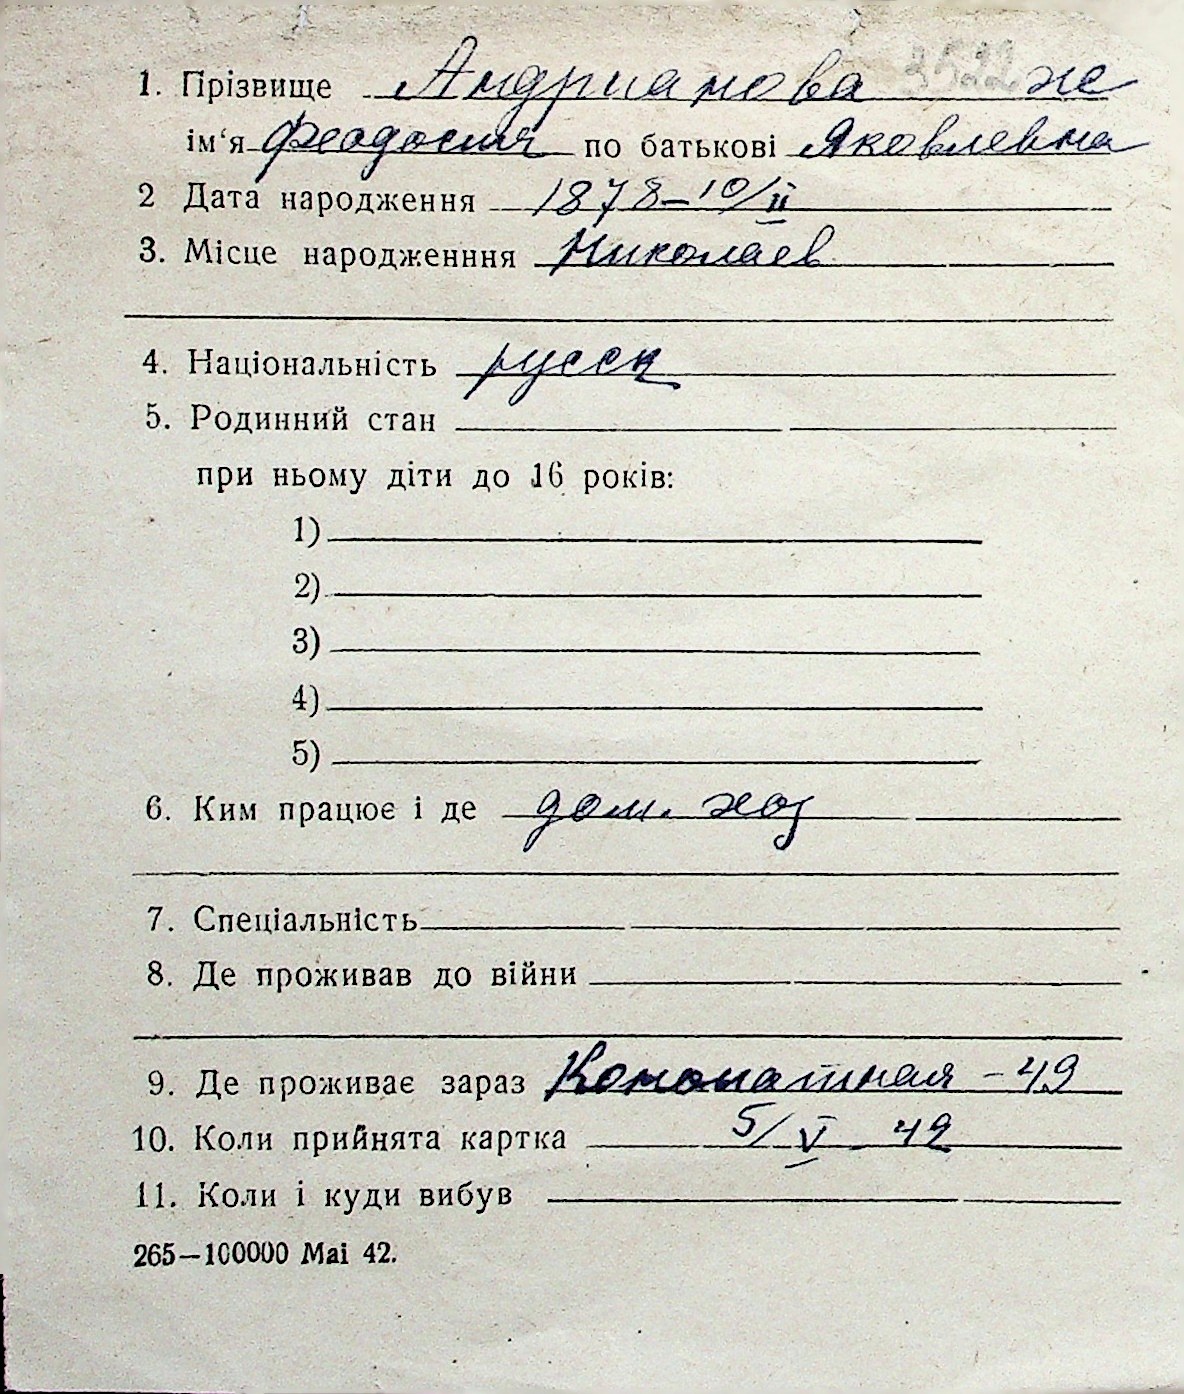 1. Прізвище Андрианова же
ім'я Феодосия по батькові Яковлевна
2 Дата народження 1878-10/II
3. Місце народженння Николаев
4. Національність русск
5. Родинний стан
при ньому діти до 16 років:
1)
2)
3)
4)
5)
6. Ким працює і де дом. хоз
7. Спеціальність
8. Де проживав до війни
9. Де проживає зараз Кономатная - 49
10. Коли прийнята картка 5/V 42
11. Коли і куди вибув
265—100000 Mai 42.